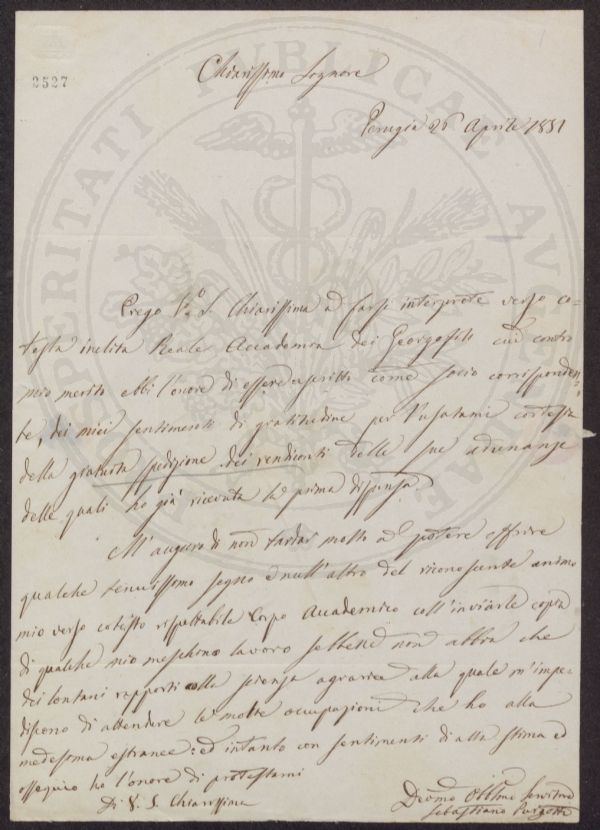 2527
Chiarissimo Signore
Perugia 26 Aprile 1851
PROSPERITATI PUBLICAE AUGENDAE
Prego V.a S. Chiarissima a farsi interprete verso co-
testa inclita Reale Accademia dei Georgofili cui contro
mio merito ebbi l'onore di essere ascritto come socio corrisponden-
te, dei miei sentimenti di gratitudine per l'usatami cortesia
della gratuita spedizione dei rendiconti delle sue adunanze
delle quali ho già ricevuta la prima dispensa.
M'auguro di non tardar molto a potere offrire
qualche tenuissimo segno e null'altro del riconoscente animo
mio verso cotesto rispettabile Corpo Accademico coll'inviarle copia
di qualche mio meschino lavoro sebbene non abbia che
dei lontani rapporti colla scienza agraria alla quale m'impe-
discono di attendere le molte occupazioni che ho alla
medesima estranee: ed intanto con sentimenti di alta stima ed
ossequio ho l'onore di protestarmi
Di V. S. Chiarissima
Devmo Obblmo Servitore
Sebastiano Purgotti